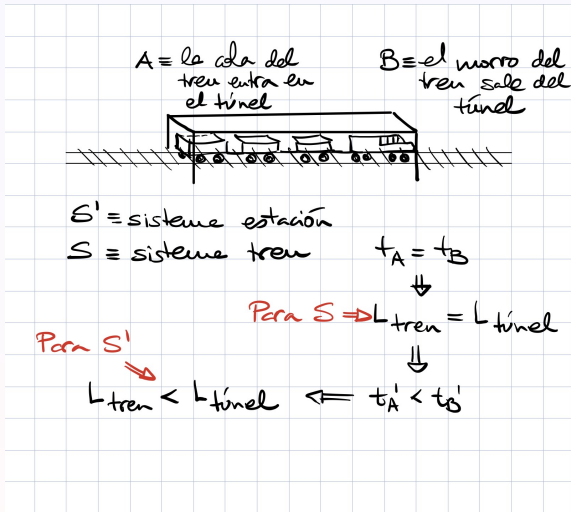 A ≡ la cola del
tren entra en
el túnel
B ≡ el morro del
tren sale del
túnel
S' ≡ sistema estación
S ≡ sistema tren
t_A = t_B
⇓
Para S ⇒ L_tren = L_túnel
⇓
Para S'
L_tren < L_túnel ⇐ t_A' < t_B'